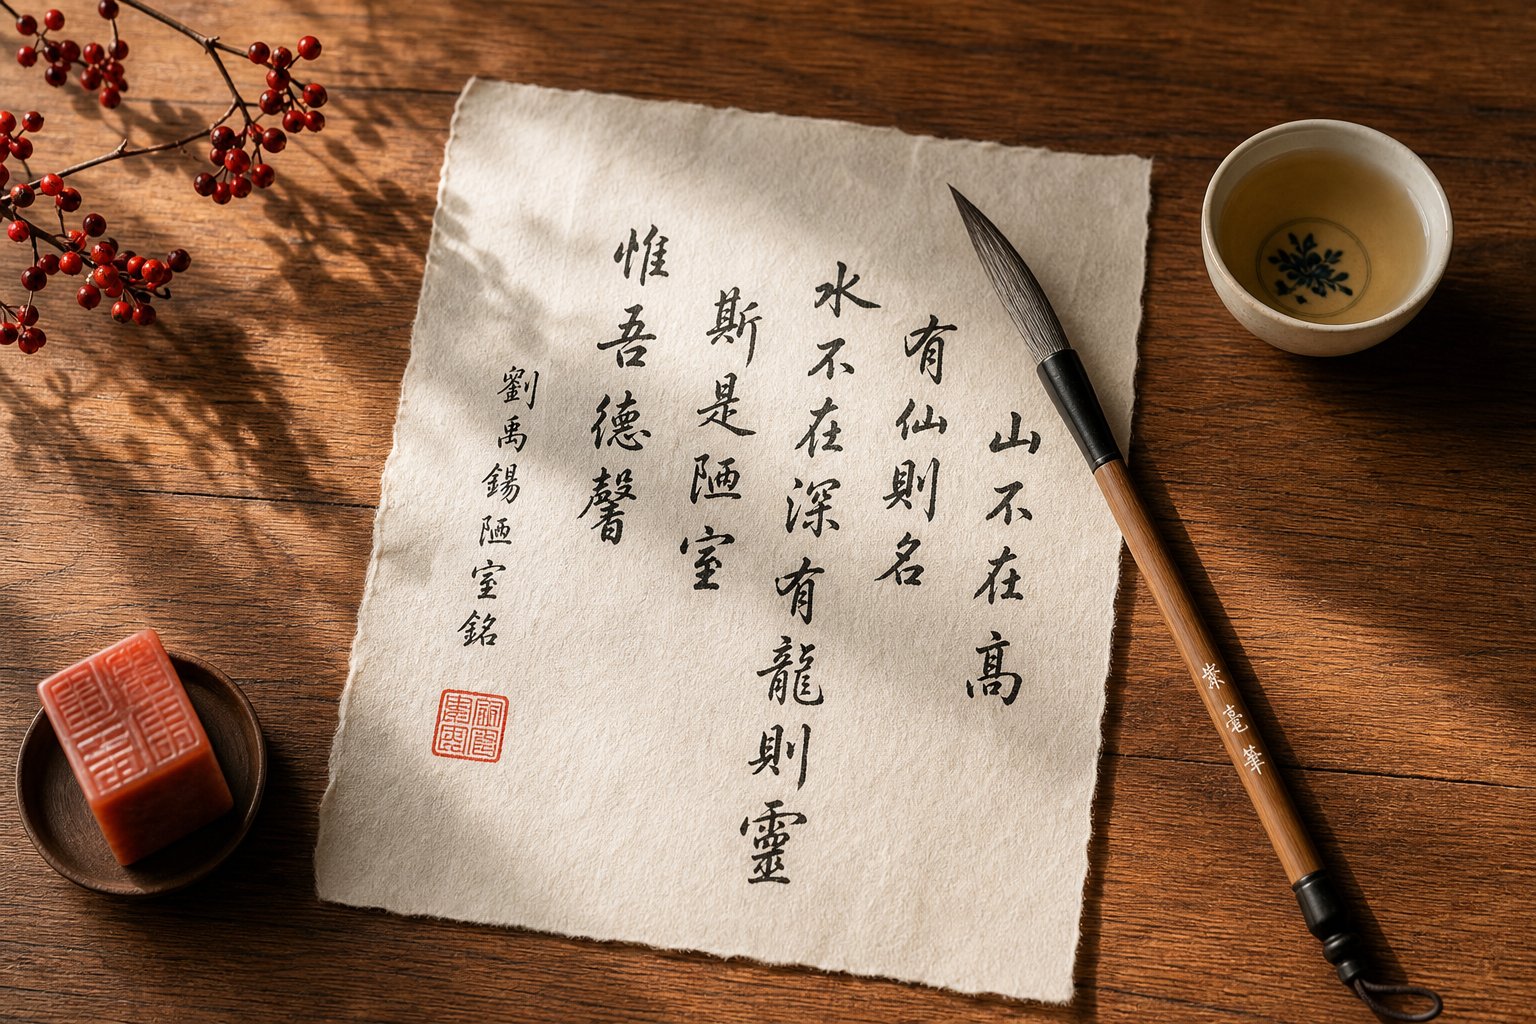 山不在高
有仙則名
水不在深有龍則靈
斯是陋室
惟吾德馨
劉禹錫陋室銘
紫毫筆